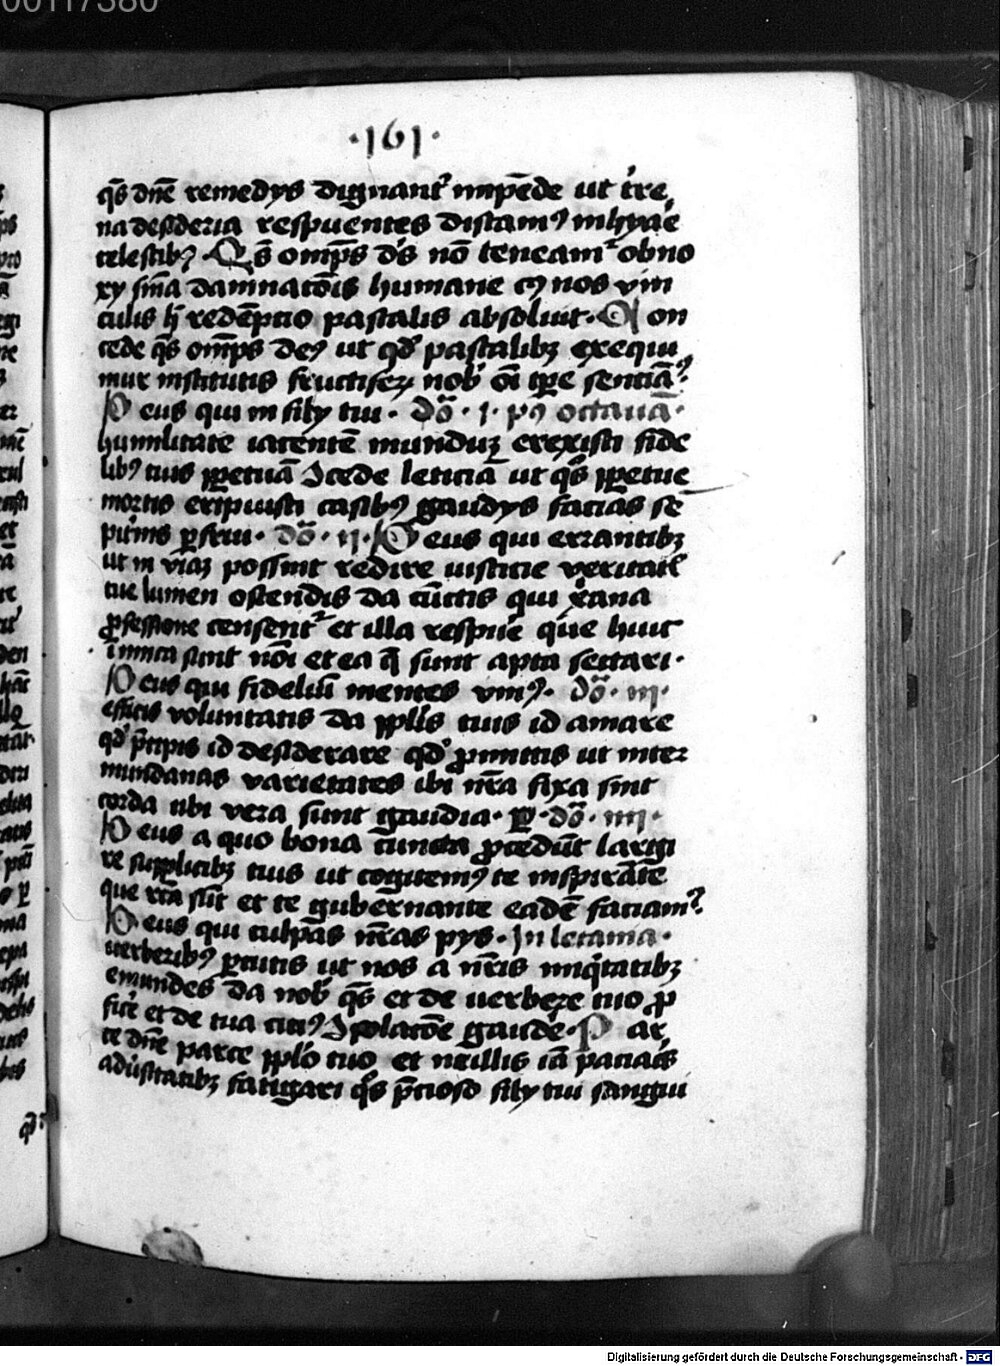 00117380
·161·
q̄s dn̄e remedys dignant᷑ impēde ut t̾re
na desideria respuentes discam⁹ inhyar̄e
celestib⁹ Q̄s omp̄s d̄s nō teneam᷑ obno
xy sn̄ia damnatōis humane cuius nos vin
culis h̄ redēptio pascalis absoluit· Con
cede q̄s omp̄s de⁹ ut qd̾ pascalibꝫ exequi
mur institutis fructiferꝫ nob̾ oī tp̄e senciā᷑
Deus qui in fily tui · dō · i · p⁹ octauā ·
humilitate iacentē mundūꝫ erexisti fide
lib⁹ tuis ꝑpetuā 9cede leticiā ut q̄s ꝑpetue
mortis eripuisti casib⁹ gaudys facias sē
pit̾nis ꝑfrui · dō · ii · Deus qui errantibꝫ
ut in viaꝫ possint redire iusticie veritatis
tue lumen ostendis da cūctis qui xᵃana
ꝓfessione censent᷑ et illa respu̾e que huic
inimica sunt nōi et ea q̄ sunt apta sectari ·
Deus qui fideliū mentes vni⁹ · dō · iii ·
efficis voluntatis da pplīs tuis id amare
qd̾ p̄cipis id desiderare qd̾ ꝓmittis ut inter
mundanas varietates ibi nr̄a fixa sint
corda ubi vera sunt gaudia · ꝑ · dō · iiii ·
Deus a quo bona cuncta ꝓcedūt largi
re supplicibꝫ tuis ut cogitem⁹ te inspirāte
que rc̄a sūt et te gubernante eadē faciam᷑
Deus qui culpas nr̄as pys · In letania ·
uerberib⁹ ꝑcutis ut nos a nr̄is iniq̾tatibꝫ
emundes da nob̾ q̄s et de uerbere tuo ꝓ
fic̾e et de tua citi⁹ 9solatōe gaud̾e · Par
ce dn̄e parce pplo tuo et nullis iā paciar̄s
adu̾sitatibꝫ fatigari q̄s p̄cioso fily tui sangui
Digitalisierung gefördert durch die Deutsche Forschungsgemeinschaft - DFG